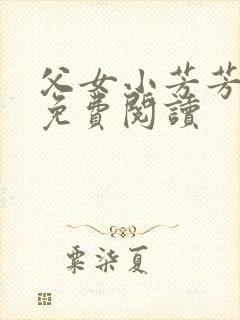 父女小芳芳
免費閱讀
粟柒夏